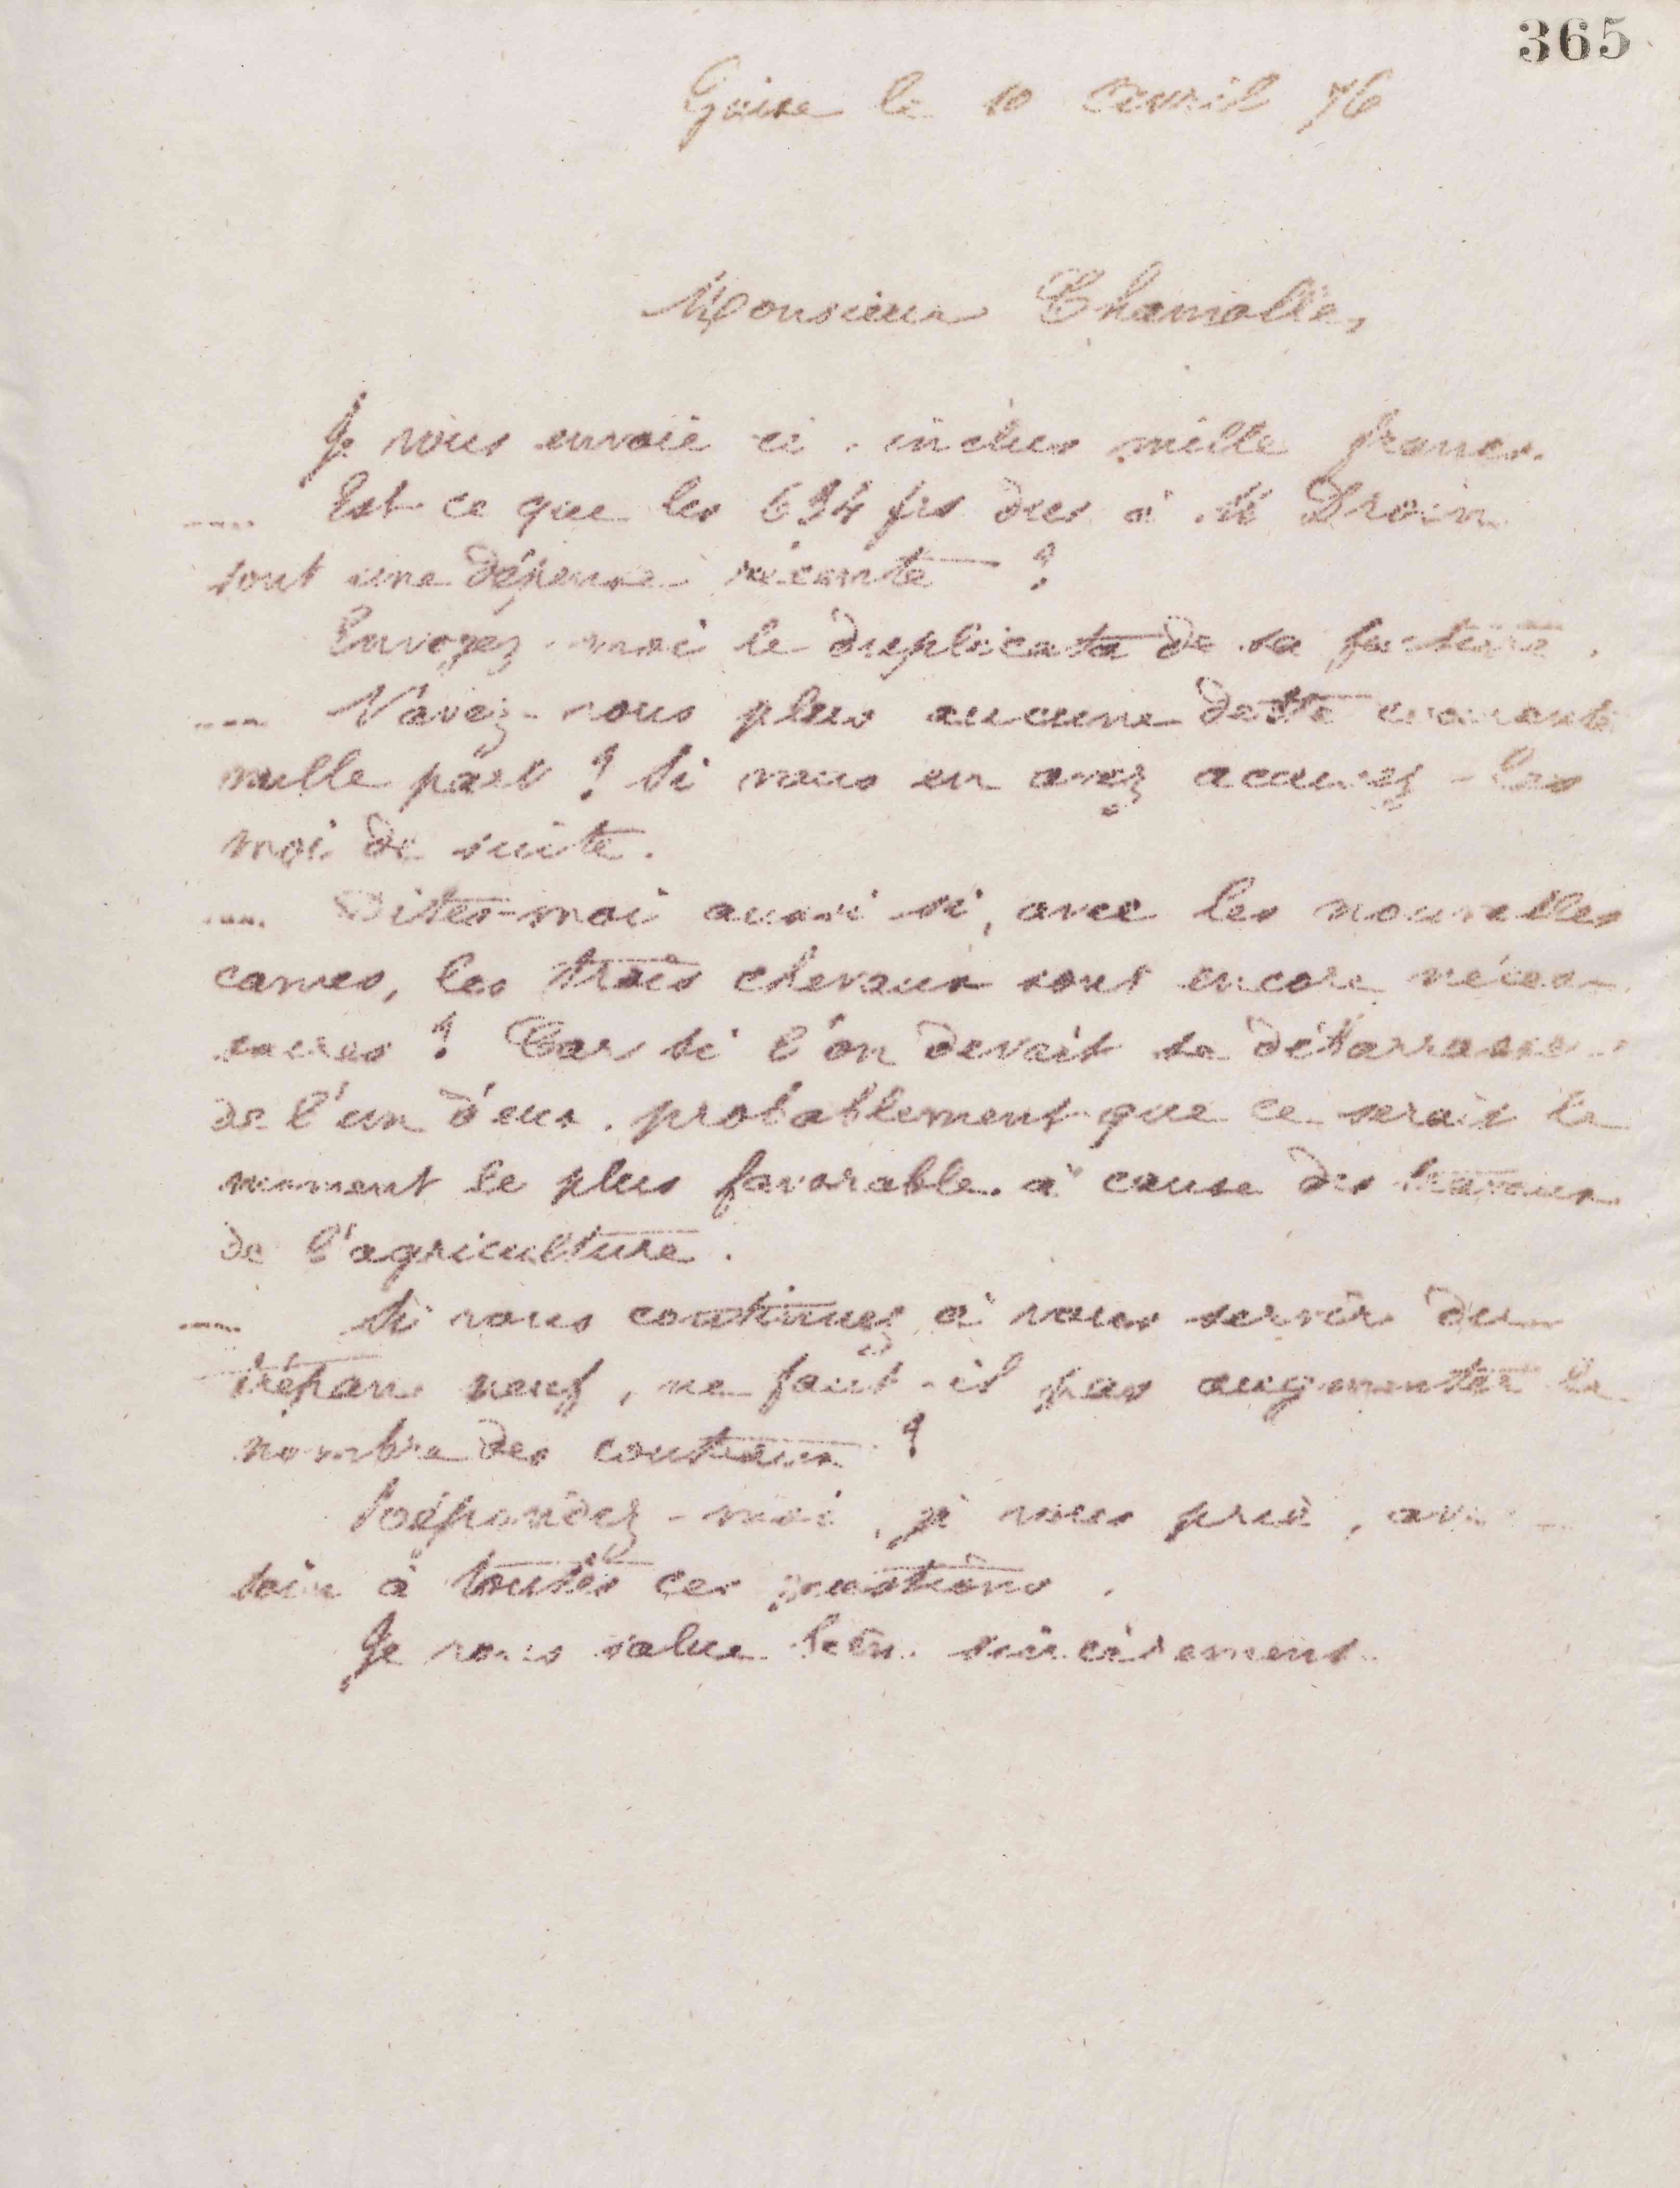 365
Guise le 10 avril 76
Monsieur Chamolle,
Je vous envoie ci-inclus mille francs.
Est ce que les 694 frs dus à M Droin
sont une dépense récente ?
Envoyez-moi le duplicata de sa facture.
N'avez-vous plus aucune dette courante
nulle part ? Si vous en avez accusez-les
moi de suite.
Dites-moi aussi si, avec les nouvelles
cames, les trois chevaux sont encore néces-
saires ? Car si l'on devait se débarrasser
de l'un d'eux, probablement que ce serait le
moment le plus favorable à cause des travaux
de l'agriculture.
Si vous continuez à vous servir du
trépan neuf, ne faut-il pas augmenter le
nombre des couteaux ?
Répondez-moi, je vous prie, avec
soin à toutes ces questions.
Je vous salue bien sincèrement.